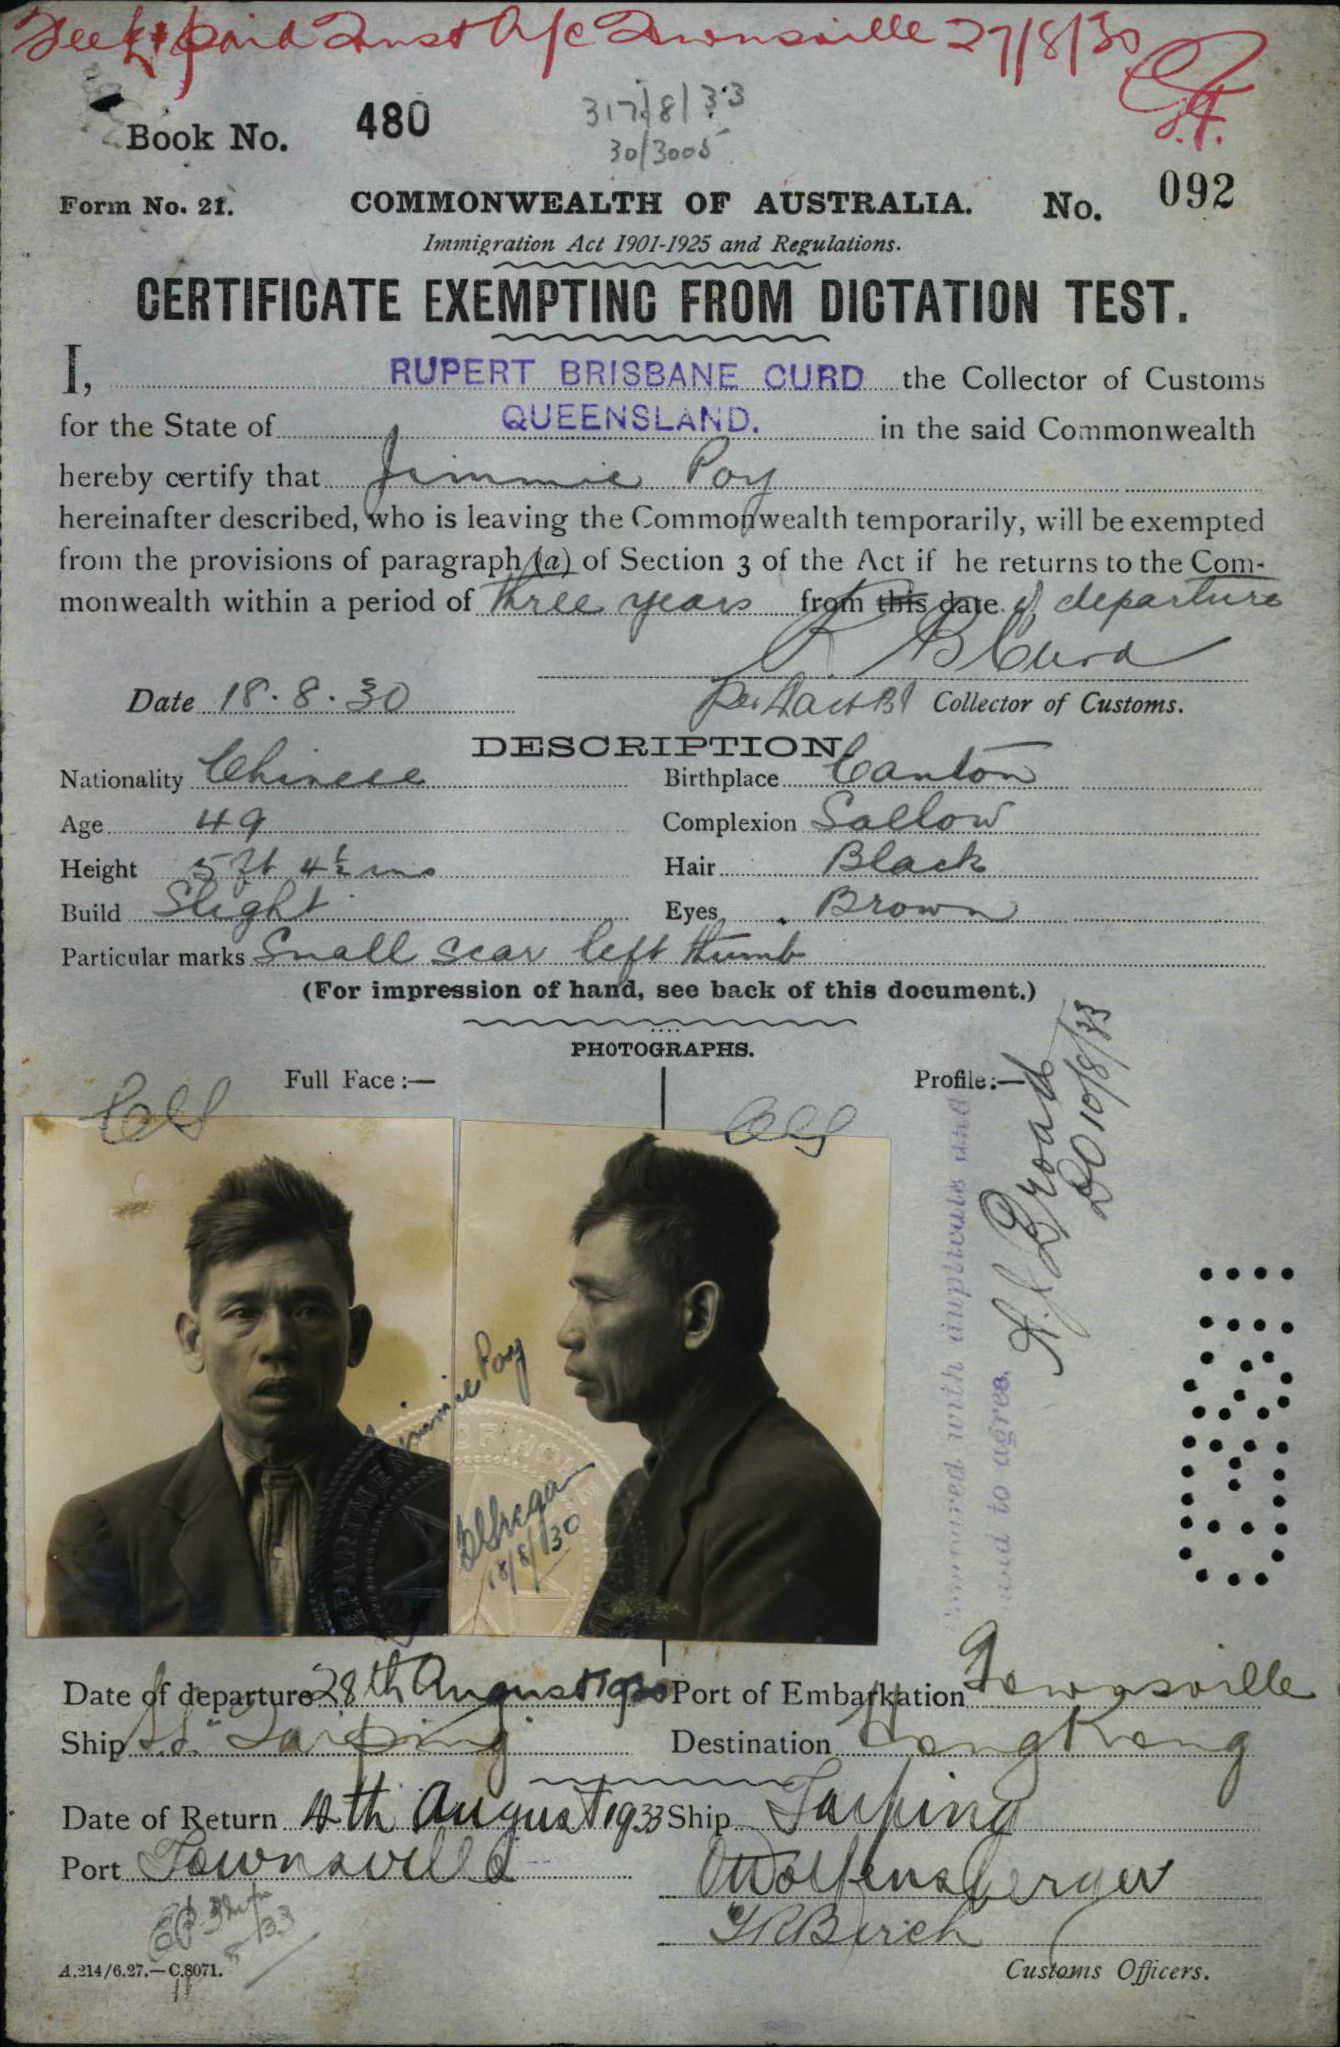 Fee £1 paid Trust A/c Townsville 27/8/30
Book No. 480
317/8/33
30/3005
Form No. 21. COMMONWEALTH OF AUSTRALIA. No. 092
Immigration Act 1901-1925 and Regulations.
CERTIFICATE EXEMPTING FROM DICTATION TEST.
I, RUPERT BRISBANE CURD the Collector of Customs
for the State of QUEENSLAND. in the said Commonwealth
hereby certify that Jimmie Poy
hereinafter described, who is leaving the Commonwealth temporarily, will be exempted
from the provisions of paragraph (a) of Section 3 of the Act if he returns to the Com-
monwealth within a period of three years from this date of departure
R B Curd
Date 18.8.30 Collector of Customs.
DESCRIPTION
Nationality Chinese Birthplace Canton
Age 49 Complexion Sallow
Height 5 ft 4½ ins Hair Black
Build Slight Eyes Brown
Particular marks Small scar left thumb
(For impression of hand, see back of this document.)
PHOTOGRAPHS.
Full Face:— Profile:—
Jimmie Poy
18/8/30
DEPARTMEN OF HO
with duplicate and
and to agree.
10/8/33
Date of departure 28th August 1930 Port of Embarkation Townsville
Ship S.S. Taiping Destination Hong Kong
Date of Return 4th August 1933 Ship Taiping
Port Townsville Wolfensberger
Birch
Customs Officers.
A.214/6.27.—C.8071.